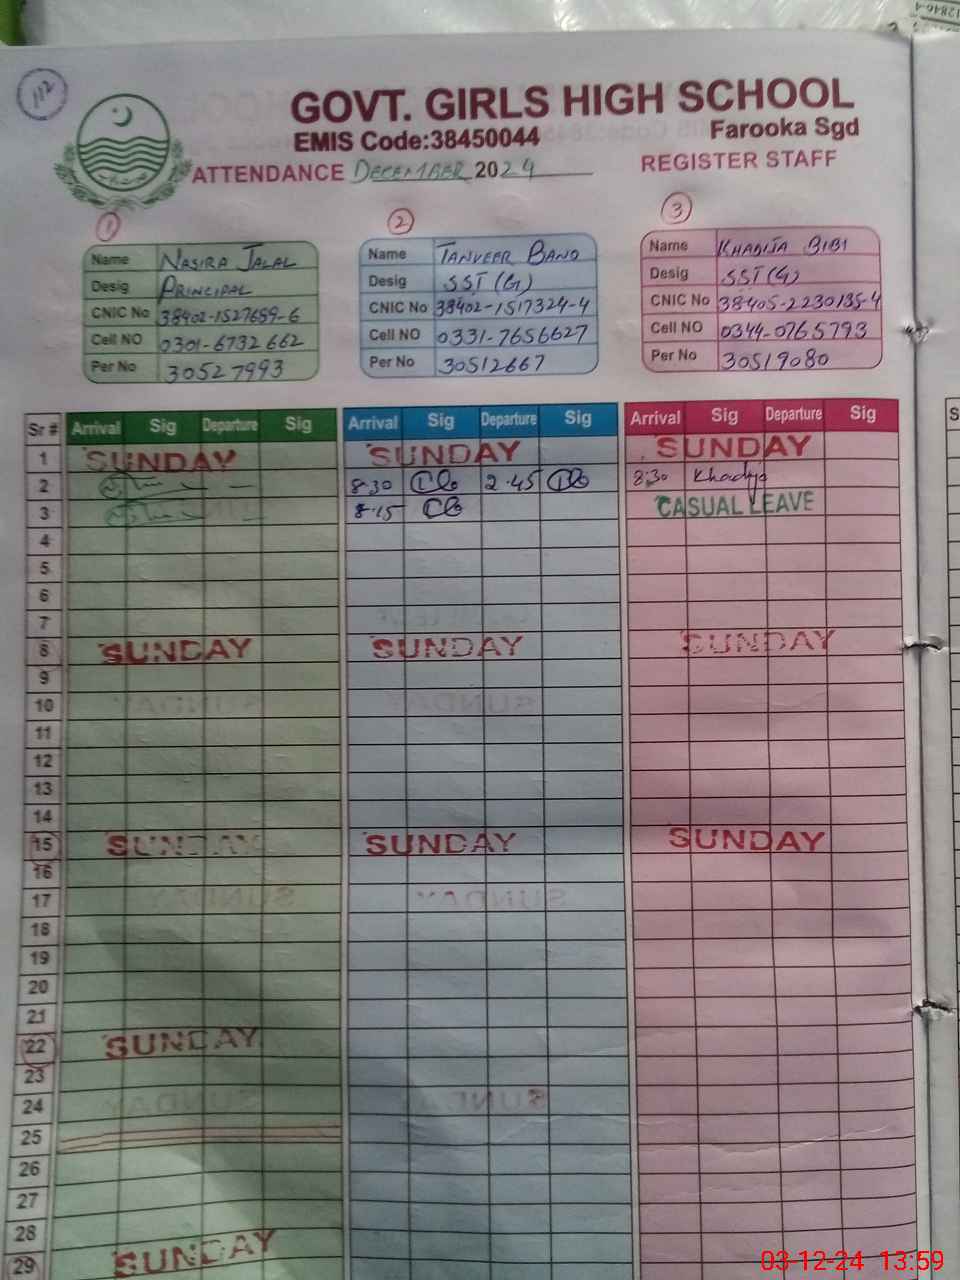 112
GOVT. GIRLS HIGH SCHOOL
EMIS Code:38450044 Farooka Sgd
ATTENDANCE DECEMBER 2024 REGISTER STAFF
1 2 3
Name NASIRA JALAL Name TANVEER BANO Name KHADIJA BIBI
Desig PRINCIPAL Desig SST (G) Desig SST (G)
CNIC No 38402-1527659-6 CNIC No 38402-1517324-4 CNIC No 38405-2230135-4
Cell NO 0301-6732662 Cell NO 0331-7656627 Cell NO 0344-0765793
Per No 30527993 Per No 30512667 Per No 30519080
Sr # Arrival Sig Departure Sig Arrival Sig Departure Sig Arrival Sig Departure Sig
1 SUNDAY SUNDAY SUNDAY
2 8:30 2:45 8:30 Khadija
3 8:15 CASUAL LEAVE
4
5
6
7
8 SUNDAY SUNDAY SUNDAY
9
10
11
12
13
14
15 SUNDAY SUNDAY SUNDAY
16
17
18
19
20
21
22 SUNDAY
23
24
25
26
27
28
29 SUNDAY
03-12-24 13:59